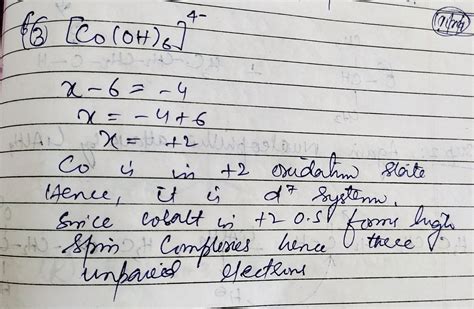 (3) [Co(OH)6]4-
x - 6 = -4
x = -4+6
x = +2
Co is in +2 oxidation state
Hence, it is d7 system.
Since cobalt in +2 O.S forms high
spin complexes hence three
unpaired electrons